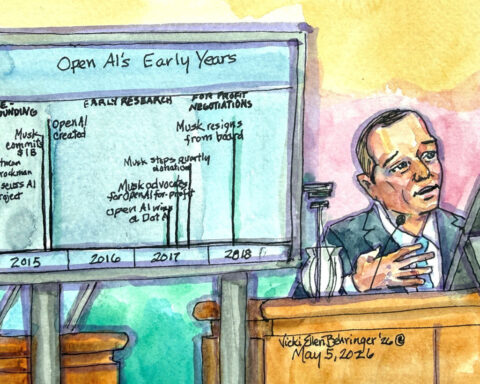 Open AI's Early Years
OUNDING
EARLY RESEARCH
FOR PROFIT
NEGOTIATIONS
Musk
commits
$1B
Open AI
created
Musk resigns
from board
Musk stops quarterly
donations
Musk advocates
for OpenAI for-profit
open AI wins
@ DotA
rockman
AI
roject
2015
2016
2017
2018
Vicki Ellen Behringer '26 ©
May 5, 2026